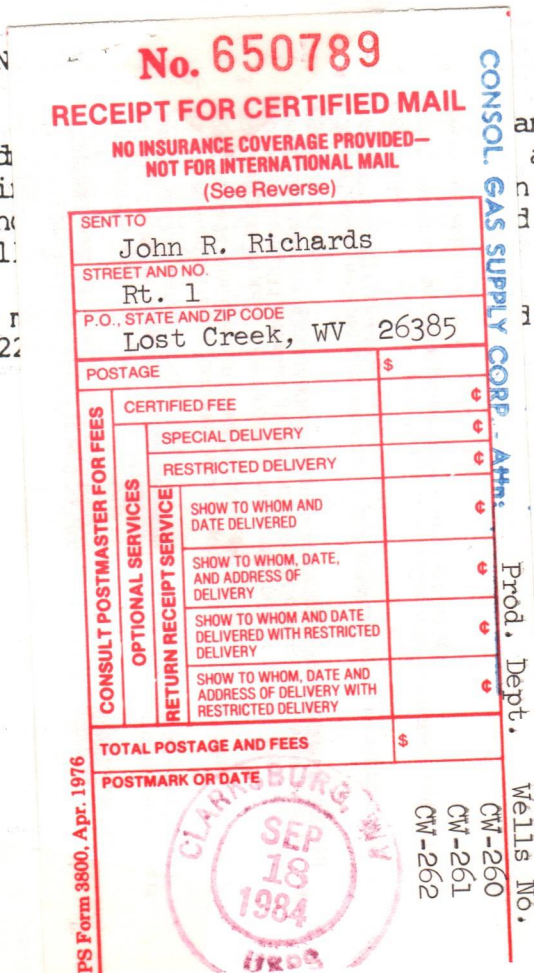 No. 650789
RECEIPT FOR CERTIFIED MAIL
NO INSURANCE COVERAGE PROVIDED—
NOT FOR INTERNATIONAL MAIL
(See Reverse)
SENT TO
John R. Richards
STREET AND NO.
Rt. 1
P.O., STATE AND ZIP CODE
Lost Creek, WV 26385
POSTAGE $
CONSULT POSTMASTER FOR FEES
CERTIFIED FEE ¢
OPTIONAL SERVICES
SPECIAL DELIVERY ¢
RESTRICTED DELIVERY ¢
RETURN RECEIPT SERVICE
SHOW TO WHOM AND
DATE DELIVERED ¢
SHOW TO WHOM, DATE,
AND ADDRESS OF
DELIVERY ¢
SHOW TO WHOM AND DATE
DELIVERED WITH RESTRICTED
DELIVERY ¢
SHOW TO WHOM, DATE AND
ADDRESS OF DELIVERY WITH
RESTRICTED DELIVERY ¢
TOTAL POSTAGE AND FEES $
POSTMARK OR DATE
CLARKSBURG, WV
SEP
18
1984
USPO
PS Form 3800, Apr. 1976
CONSOL. GAS SUPPLY CORP - Attn:
Prod. Dept. Wells No.
CW-260
CW-261
CW-262